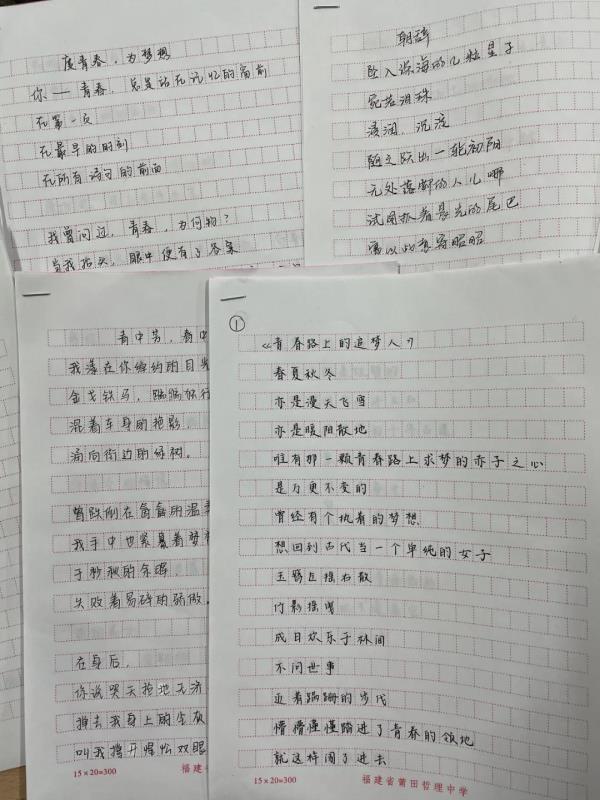 度青春，为梦想
你——青春，总是站在记忆的窗前
在第一页
在最早的时刻
在所有诗句的前面
我曾问过，青春，为何物？
当我抬头，眼中便有了答案
朝辞
坠入深海的几粒星子
宛若泪珠
浸润，沉淀
随之跃出一轮初阳
无处落脚的人儿哪
试图抓着晨光的尾巴
青中芳，春中
我落在你缠绵的目光
金戈铁马，踽踽独行
混着车身的拖影
涌向街边的绿树。
曾跌倒在奋奋的温柔
我手中也紧攥着梦
于吵秋的余晖，
失败着易碎的骄傲。
在身后，
你说哭天抢地无济
掸去我身上的尘灰
叫我撑开惺忪双眼
15×20=300
福建省
①
《青春路上的追梦人》
春夏秋冬
亦是漫天飞雪
亦是暖阳散地
唯有那一颗青春路上求梦的赤子之心
是万更不变的
曾经有个执着的梦想
想回到古代当一个单纯的女子
玉簪丘摇右散
竹影摇曳
成日欢乐于林间
不问世事
迈着蹒跚的步伐
懵懵懂懂踏进了青春的领地
就这样闯了进去
15×20=300
福建省莆田哲理中学